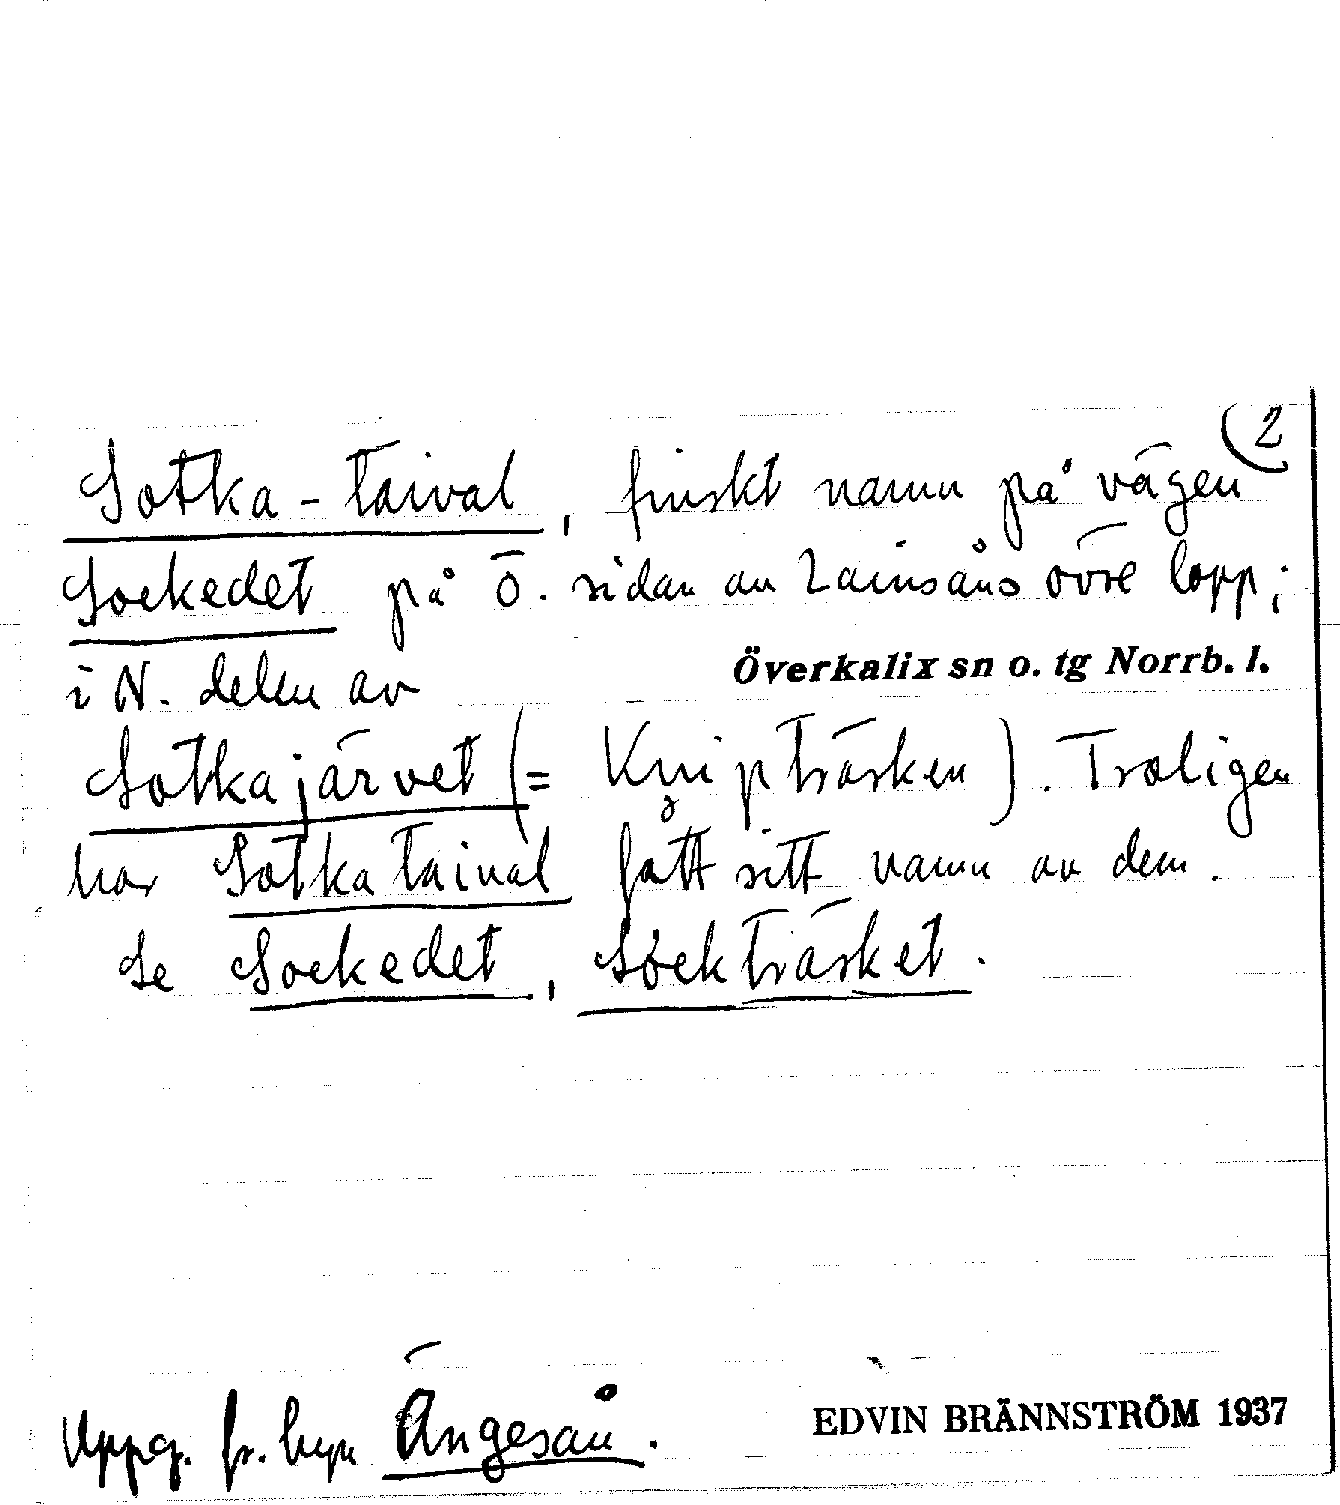 2
Sotka-taival, finskt namn på vägen
Sockedet på Ö. sidan av Lainsåns övre lopp;
i N. delen av
Överkalix sn o. tg Norrb. l.
Sotkajärvet (= Knipträsken). Troligen
har Sotkataival fått sitt namn av dem.
Se Sockedet, Söckträsket.
Uppg. fr. byn Ängesån.
EDVIN BRÄNNSTRÖM 1937